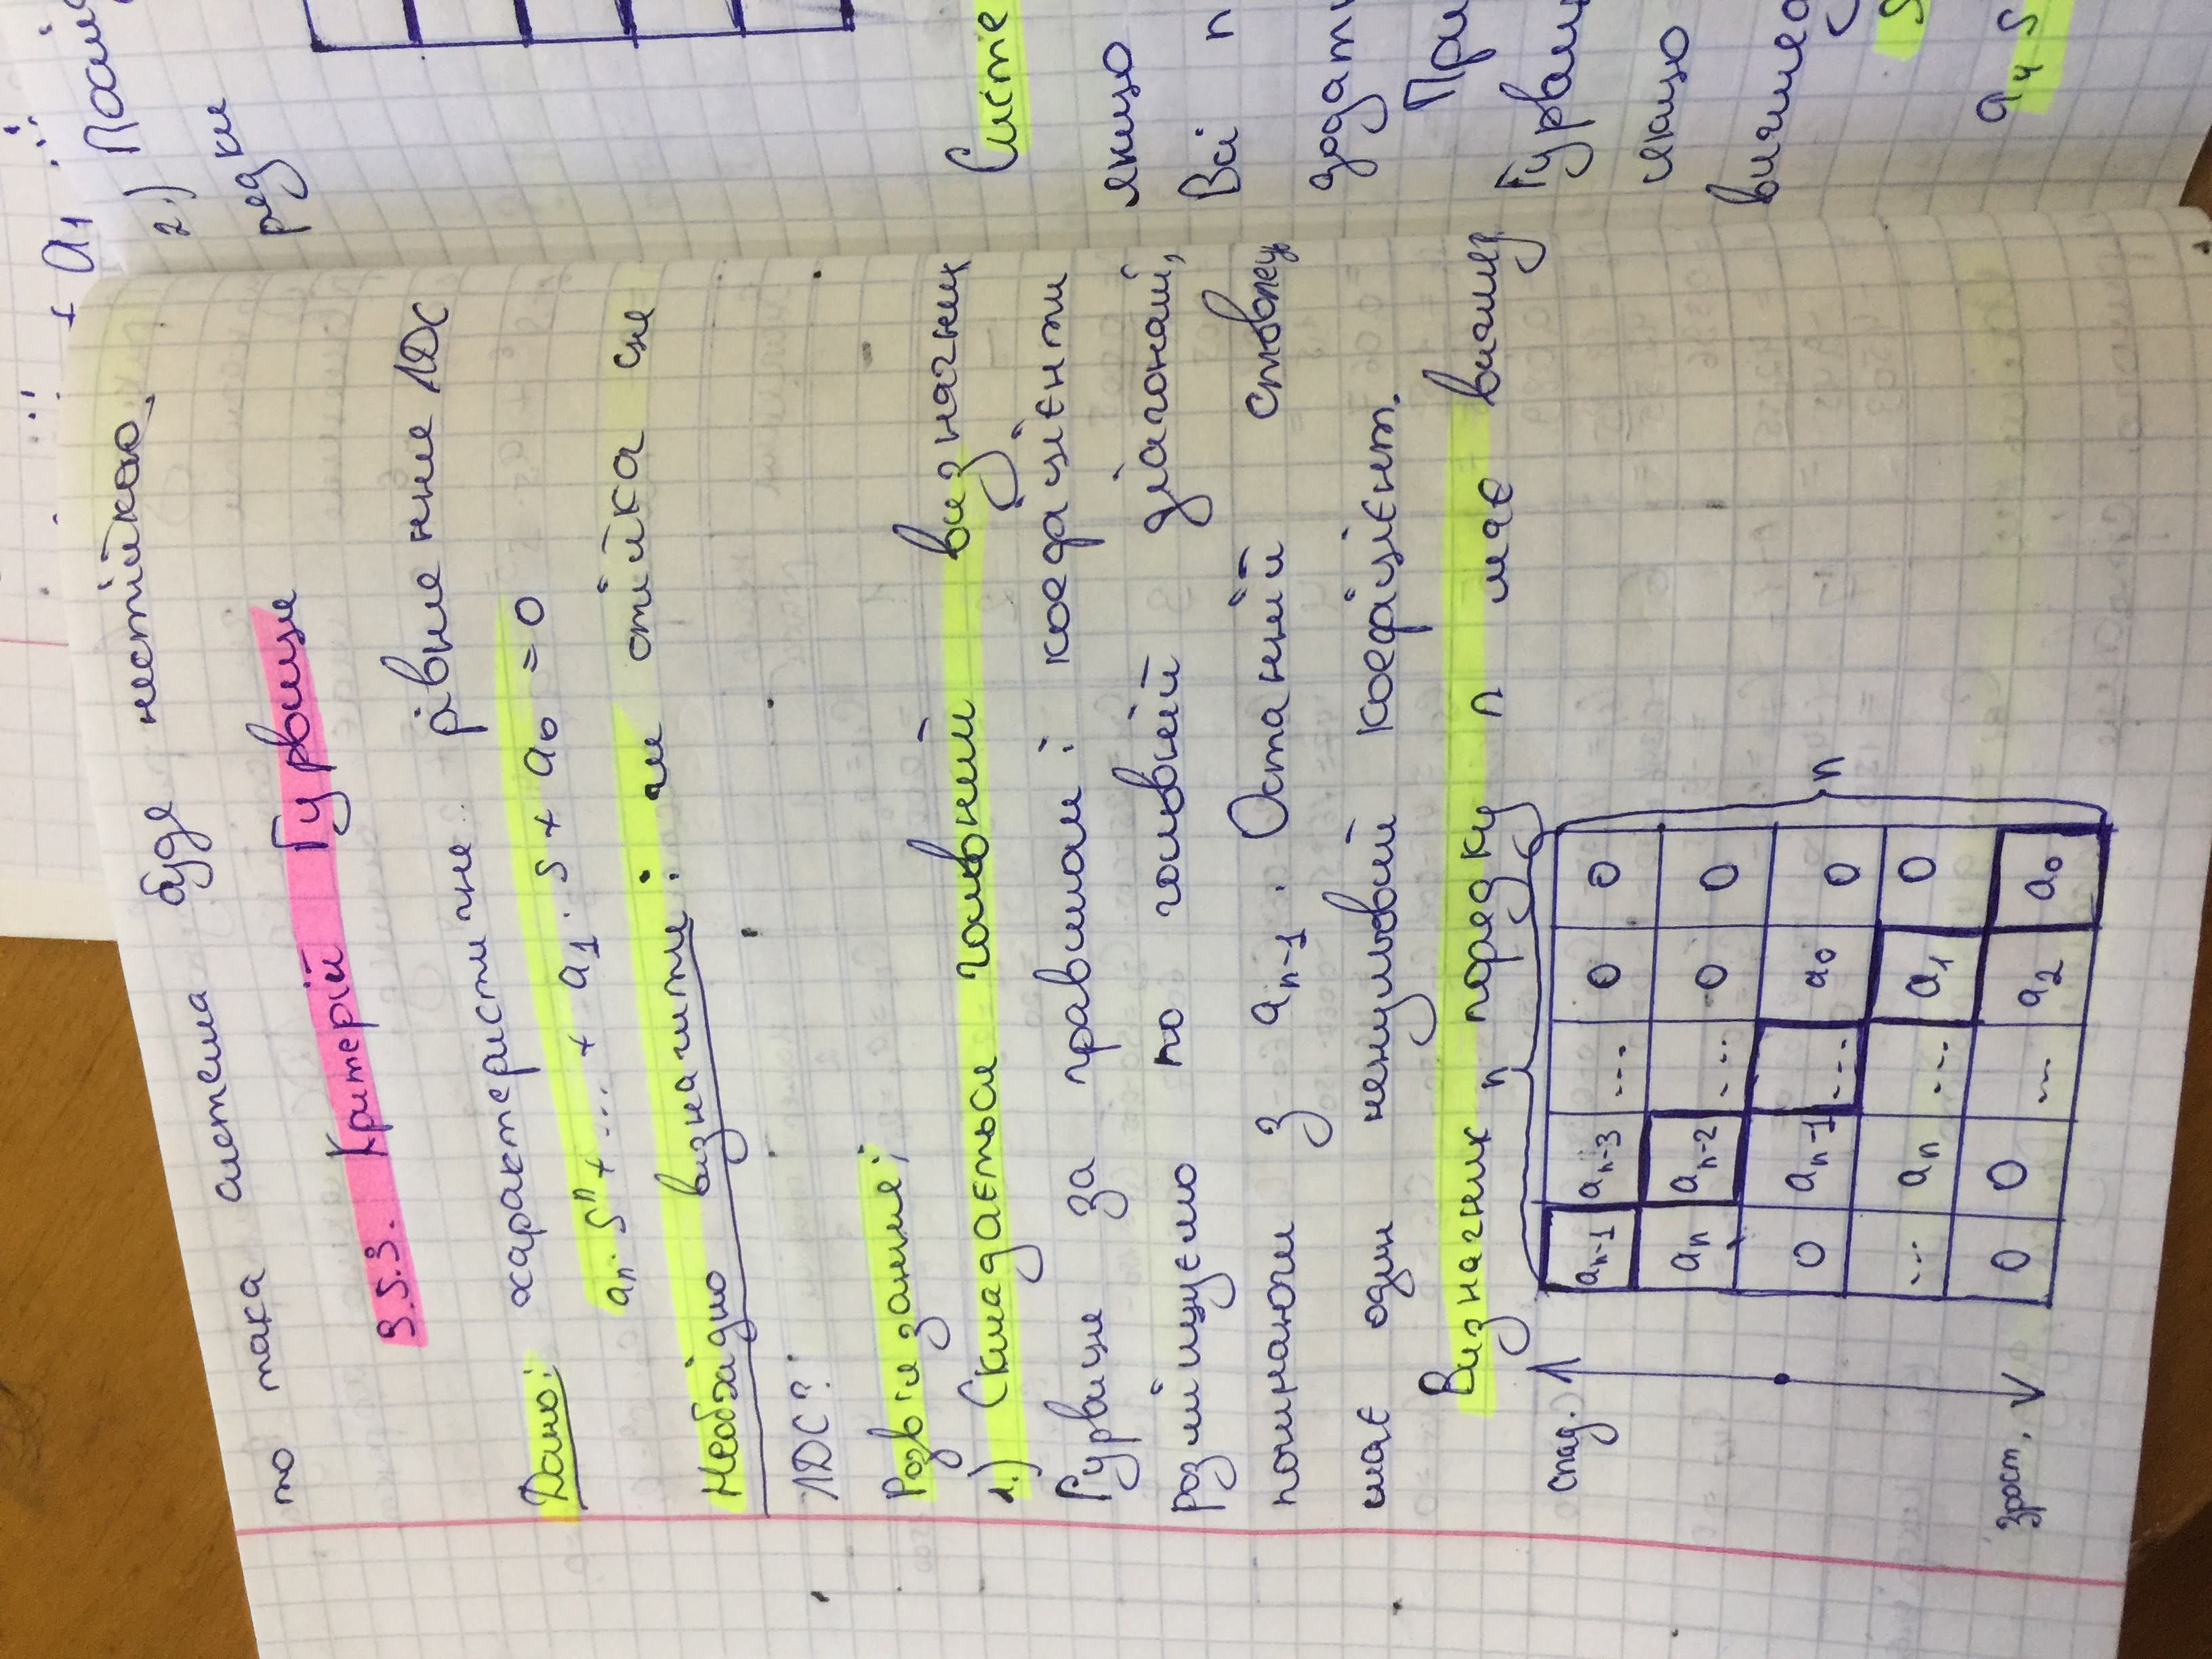 то така система буде нестійкою.
3.5.3. Критерій Гурвиця
Дано: характеристичне рівняння ЛДС
aₙ · Sⁿ + ... + a₁ · S + a₀ = 0
Необхідно визначити: чи стійка ця
ЛДС?
Розв'язання:
1.) Складається головний визначник
Гурвиця за правилом: коефіцієнти
розміщуємо по головній діагоналі,
починаючи з aₙ₋₁. Останній стовпець
має один ненульовий коефіцієнт.
Визначник порядку n має вигляд
n
спад.
aₙ₋₁ aₙ₋₃ ... 0 0
aₙ aₙ₋₂ ... 0 0
0 aₙ₋₁ ... a₀ 0
n
... aₙ ... a₁ 0
зрост.
0 0 ... a₂ a₀
+ a₁
2.)
редки
Систе
якщо
Всі n
додатн
При
Гурвиц
якщо
вигляд
S
a₄ S